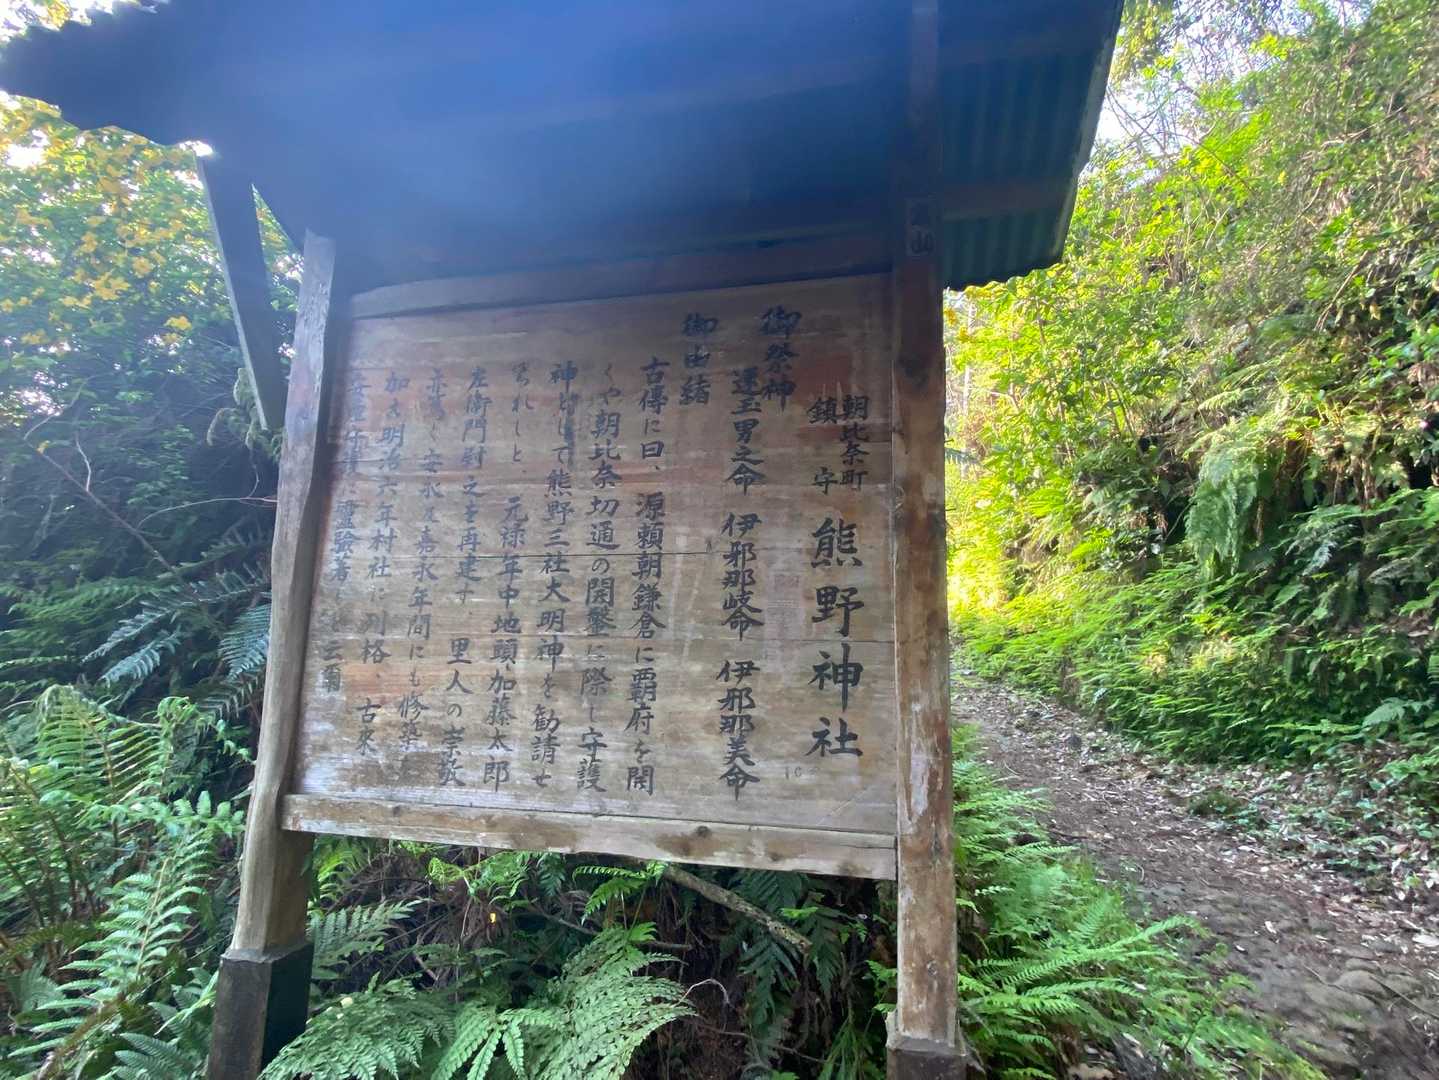 朝比奈町
鎮守 熊野神社
御祭神
速玉男之命 伊邪那岐命 伊邪那美命
御由緒
古傳に曰、源頼朝鎌倉に覇府を開
くや朝比奈切通の開鑿に際し守護
神として熊野三社大明神を勧請せ
られしと、元禄年中地頭加藤太郎
左衛門尉之を再建す 里人の崇敬
亦篤く安永及嘉永年間にも修築
加え明治六年村社に列格、古来
霊験著 云爾